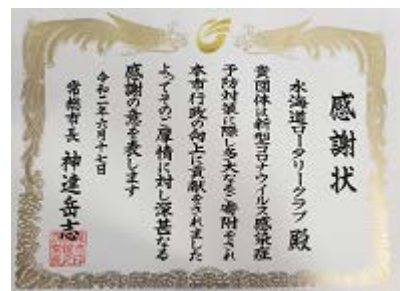 感謝状
水海道ロータリークラブ殿
貴団体は新型コロナウイルス感染症
予防対策に際し多大なるご寄附をされ
本市行政の向上に貢献をされました
よってそのご厚情に対し深甚なる
感謝の意を表します
令和二年六月十七日
常総市長 神達岳志